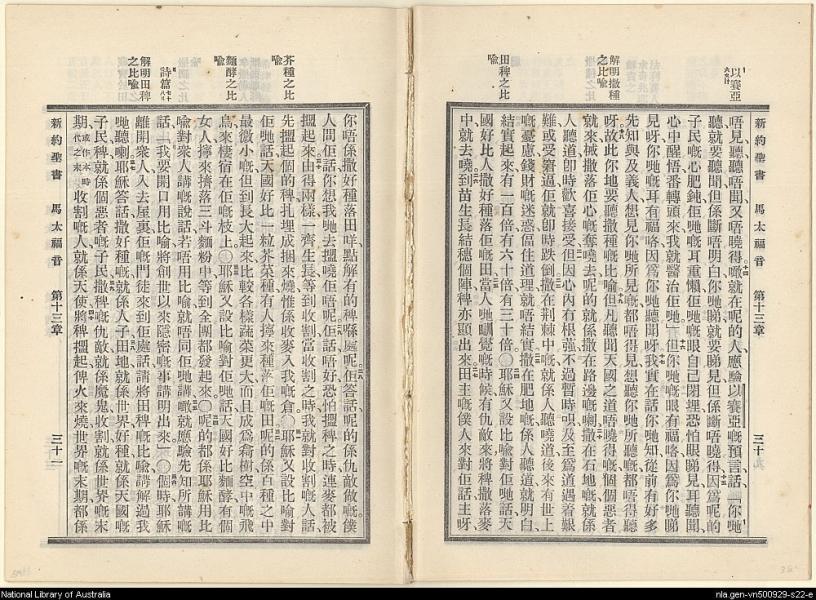 以賽亞
六之九
解明撒種
之比喻
田稗之比
喻
新約聖書 馬太福音 第十三章 三十
唔見聽聽唔聞又唔曉得噉就在呢的人應驗以賽亞嘅預言話「你哋
聽就要聽聞但係斷唔明白你哋睇就要睇見但係斷唔曉得因爲呢的
子民嘅心肥鈍佢哋嘅耳重懶佢哋嘅眼自己閉埋恐怕眼睇見耳聽聞
心中醒悟番轉頭來我就醫治佢哋」但你哋嘅眼有福咯因爲你哋睇
見呀你哋嘅耳有福咯因爲你哋聽聞呀我實在話你哋知從前有好多
先知與及義人想見你哋所見嘅都唔得見想聽你哋所聽嘅都唔得聽
呀故此你哋要聽撒種嘅比喻但凡聽聞天國之道唔曉得嘅個個惡者
就來摵撒落佢心嘅奪嘵去呢的就係撒在路邊嘅喇撒在石地嘅就係
人聽道卽時歡喜接受但因心內有根强不過暫時唄及至爲道遇着艱
難或受窘逼佢就卽時跌倒撒在荆棘中嘅就係人聽嘵道後來有世上
嘅憂慮錢財嘅迷惑𢫏住道理就唔結實撒在肥地嘅係人聽道就明白
結實起來有一百倍有六十倍有三十倍〇耶穌又設比喻對佢哋話天
國好比人撒好種落佢嘅田當人哋瞓覺嘅時候有仇敵來將稗撒落麥
中就去嘵到苗生長結穗個陣稗亦顯出來田主嘅僕人來對佢話主呀
芥種之比
喻
麵酵之比
喻
詩篇七十
解明田稗
之比喻
新約聖書 馬太福音 第十三章 三十一
你唔係撒好種落田咩點解有的稗喺處呢佢答話呢的係仇敵做嘅僕
人問佢話你想我哋去搵嘵佢唔呢佢話唔好恐怕搵稗之時連麥都被
搵起來由得兩樣一齊生長等到收割當收割之時我就對收割嘅人話
先搵起個的稗扎埋成捆來燒惟係收麥入我嘅倉〇耶穌又設比喻對
佢哋話天國好比一粒芥菜種有人擰來種落佢嘅田呢的係百種之中
最微小嘅但到長大起來比較各樣蔬菜更大而且成爲喬樹空中嘅飛
鳥來棲宿在佢嘅枝上〇耶穌又設比喻對佢哋話天國好比麵酵有個
女人擰來擠落三斗麵粉中等到全團都發起來〇呢的都係耶穌用比
喻對衆人講嘅說話若唔用比喻就唔同佢哋講嘅就應驗先知所講嘅
話「我要開口用比喻將創世以來隱密嘅事講明出來」〇個時耶穌
離開衆人入去屋裏佢嘅門徒來到佢處話請將田稗嘅比喻講解過我
哋聽喇耶穌答話撒好種嘅就係人子田地就係世界好種就係天國嘅
子民稗就係個惡者嘅子民撒稗嘅仇敵就係魔鬼收割就係世界嘅末
期收割嘅人就係天使將稗搵起俾火來燒世界嘅末期都係
National Library of Australia
nla.gen-vn500929-s22-e